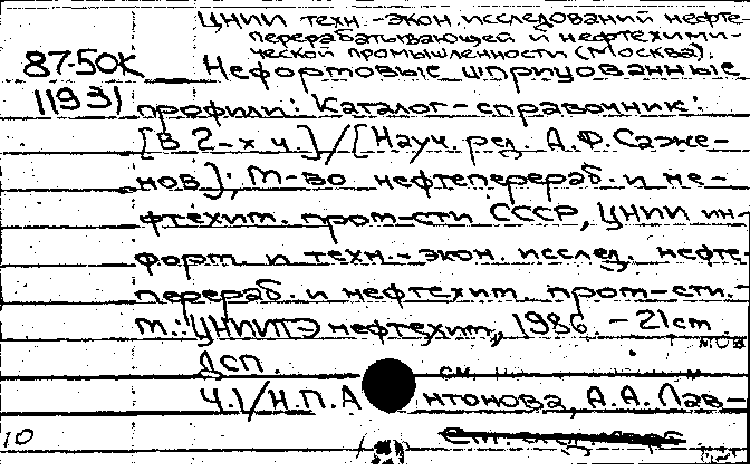 ЦНИИ техн.-экон. исследований нефте-
перерабатывающей и нефтехими-
ческой промышленности (Москва).
87-50К Нефортовые шприцованные
11931 профили: Каталог-справочник:
[В 2-х ч.] / [Науч. ред. А.Ф. Саже-
нов]; М-во нефтеперераб. и не-
фтехим. пром-сти СССР, ЦНИИ ин-
форм. и техн.-экон. исслед. нефте-
перераб. и нефтехим. пром-сти.-
М.: ЦНИИТЭнефтехим, 1986. - 21см.
ДСП. см.
Ч.1/Н.П.Антонова, А.А. Лав-
10